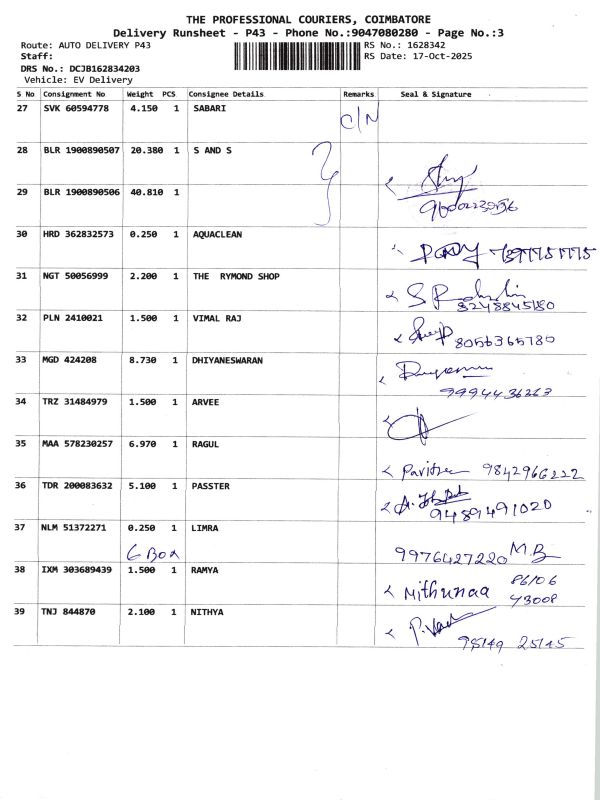 THE PROFESSIONAL COURIERS, COIMBATORE
Delivery Runsheet - P43 - Phone No.:9047080280 - Page No.:3
Route: AUTO DELIVERY P43 RS No.: 1628342
Staff: RS Date: 17-Oct-2025
DRS No.: DCJB162834203
Vehicle: EV Delivery
S No Consignment No Weight PCS Consignee Details Remarks Seal & Signature
27 SVK 60594778 4.150 1 SABARI
C/N
28 BLR 1900890507 20.380 1 S AND S
29 BLR 1900890506 40.810 1
30 HRD 362832573 0.250 1 AQUACLEAN
31 NGT 50056999 2.200 1 THE RYMOND SHOP
8248845180
32 PLN 2410021 1.500 1 VIMAL RAJ
8056365780
33 MGD 424208 8.730 1 DHIYANESWARAN
9994436263
34 TRZ 31484979 1.500 1 ARVEE
35 MAA 578230257 6.970 1 RAGUL
9842966222
36 TDR 200083632 5.100 1 PASSTER
9489491020
37 NLM 51372271 0.250 1 LIMRA
6 Box 9976427220 M.B
38 IXM 303689439 1.500 1 RAMYA
Mithunaa 86106
43008
39 TNJ 844870 2.100 1 NITHYA
95149 25145